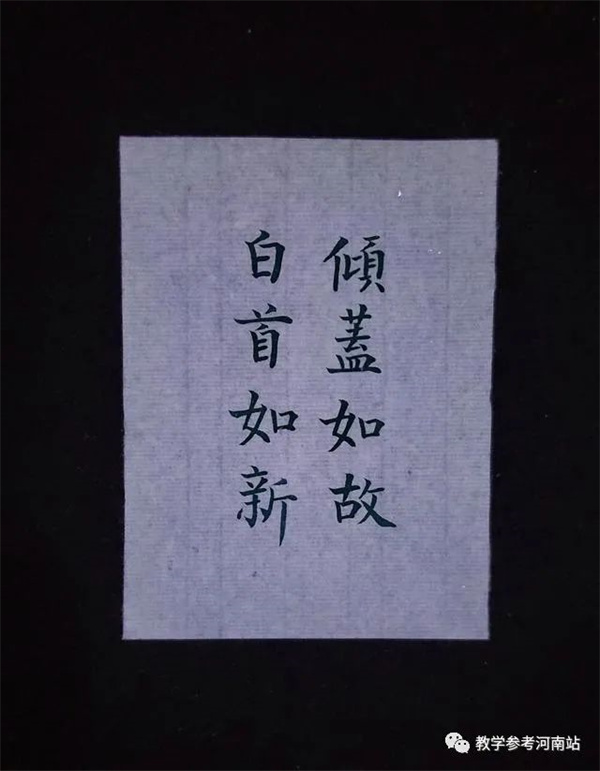 傾蓋如故
白首如新
教学参考河南站